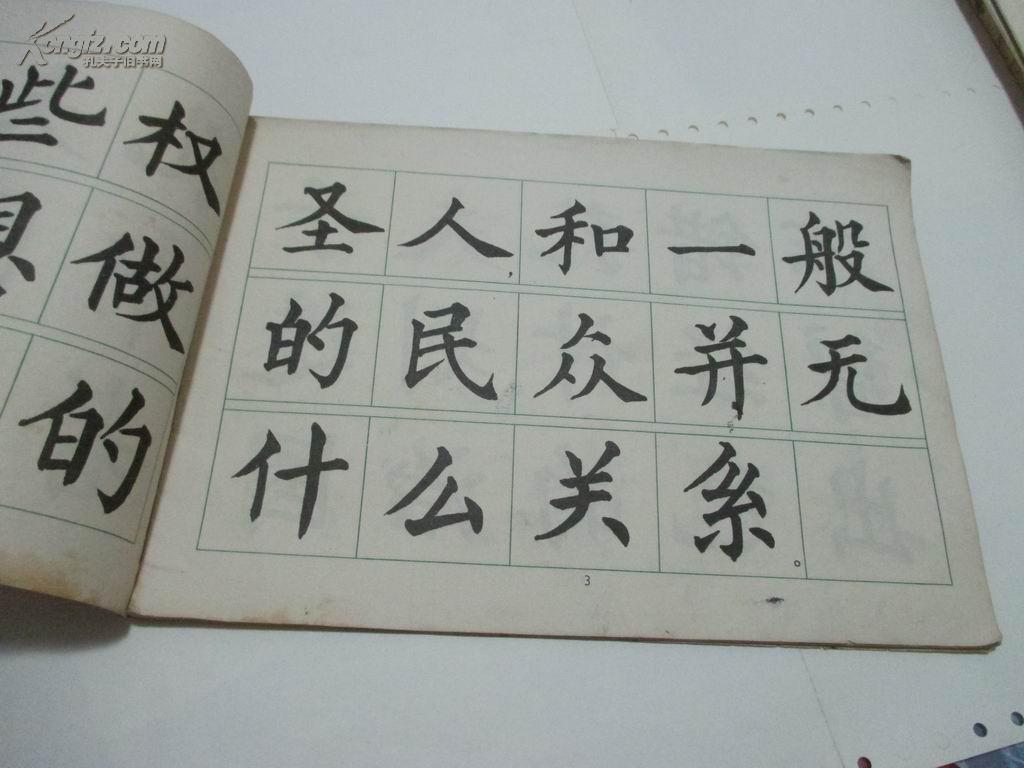 Kongfz.com
孔夫子旧书网
些权
做
的
圣人,和一般
的民众并无
什么关系。
3